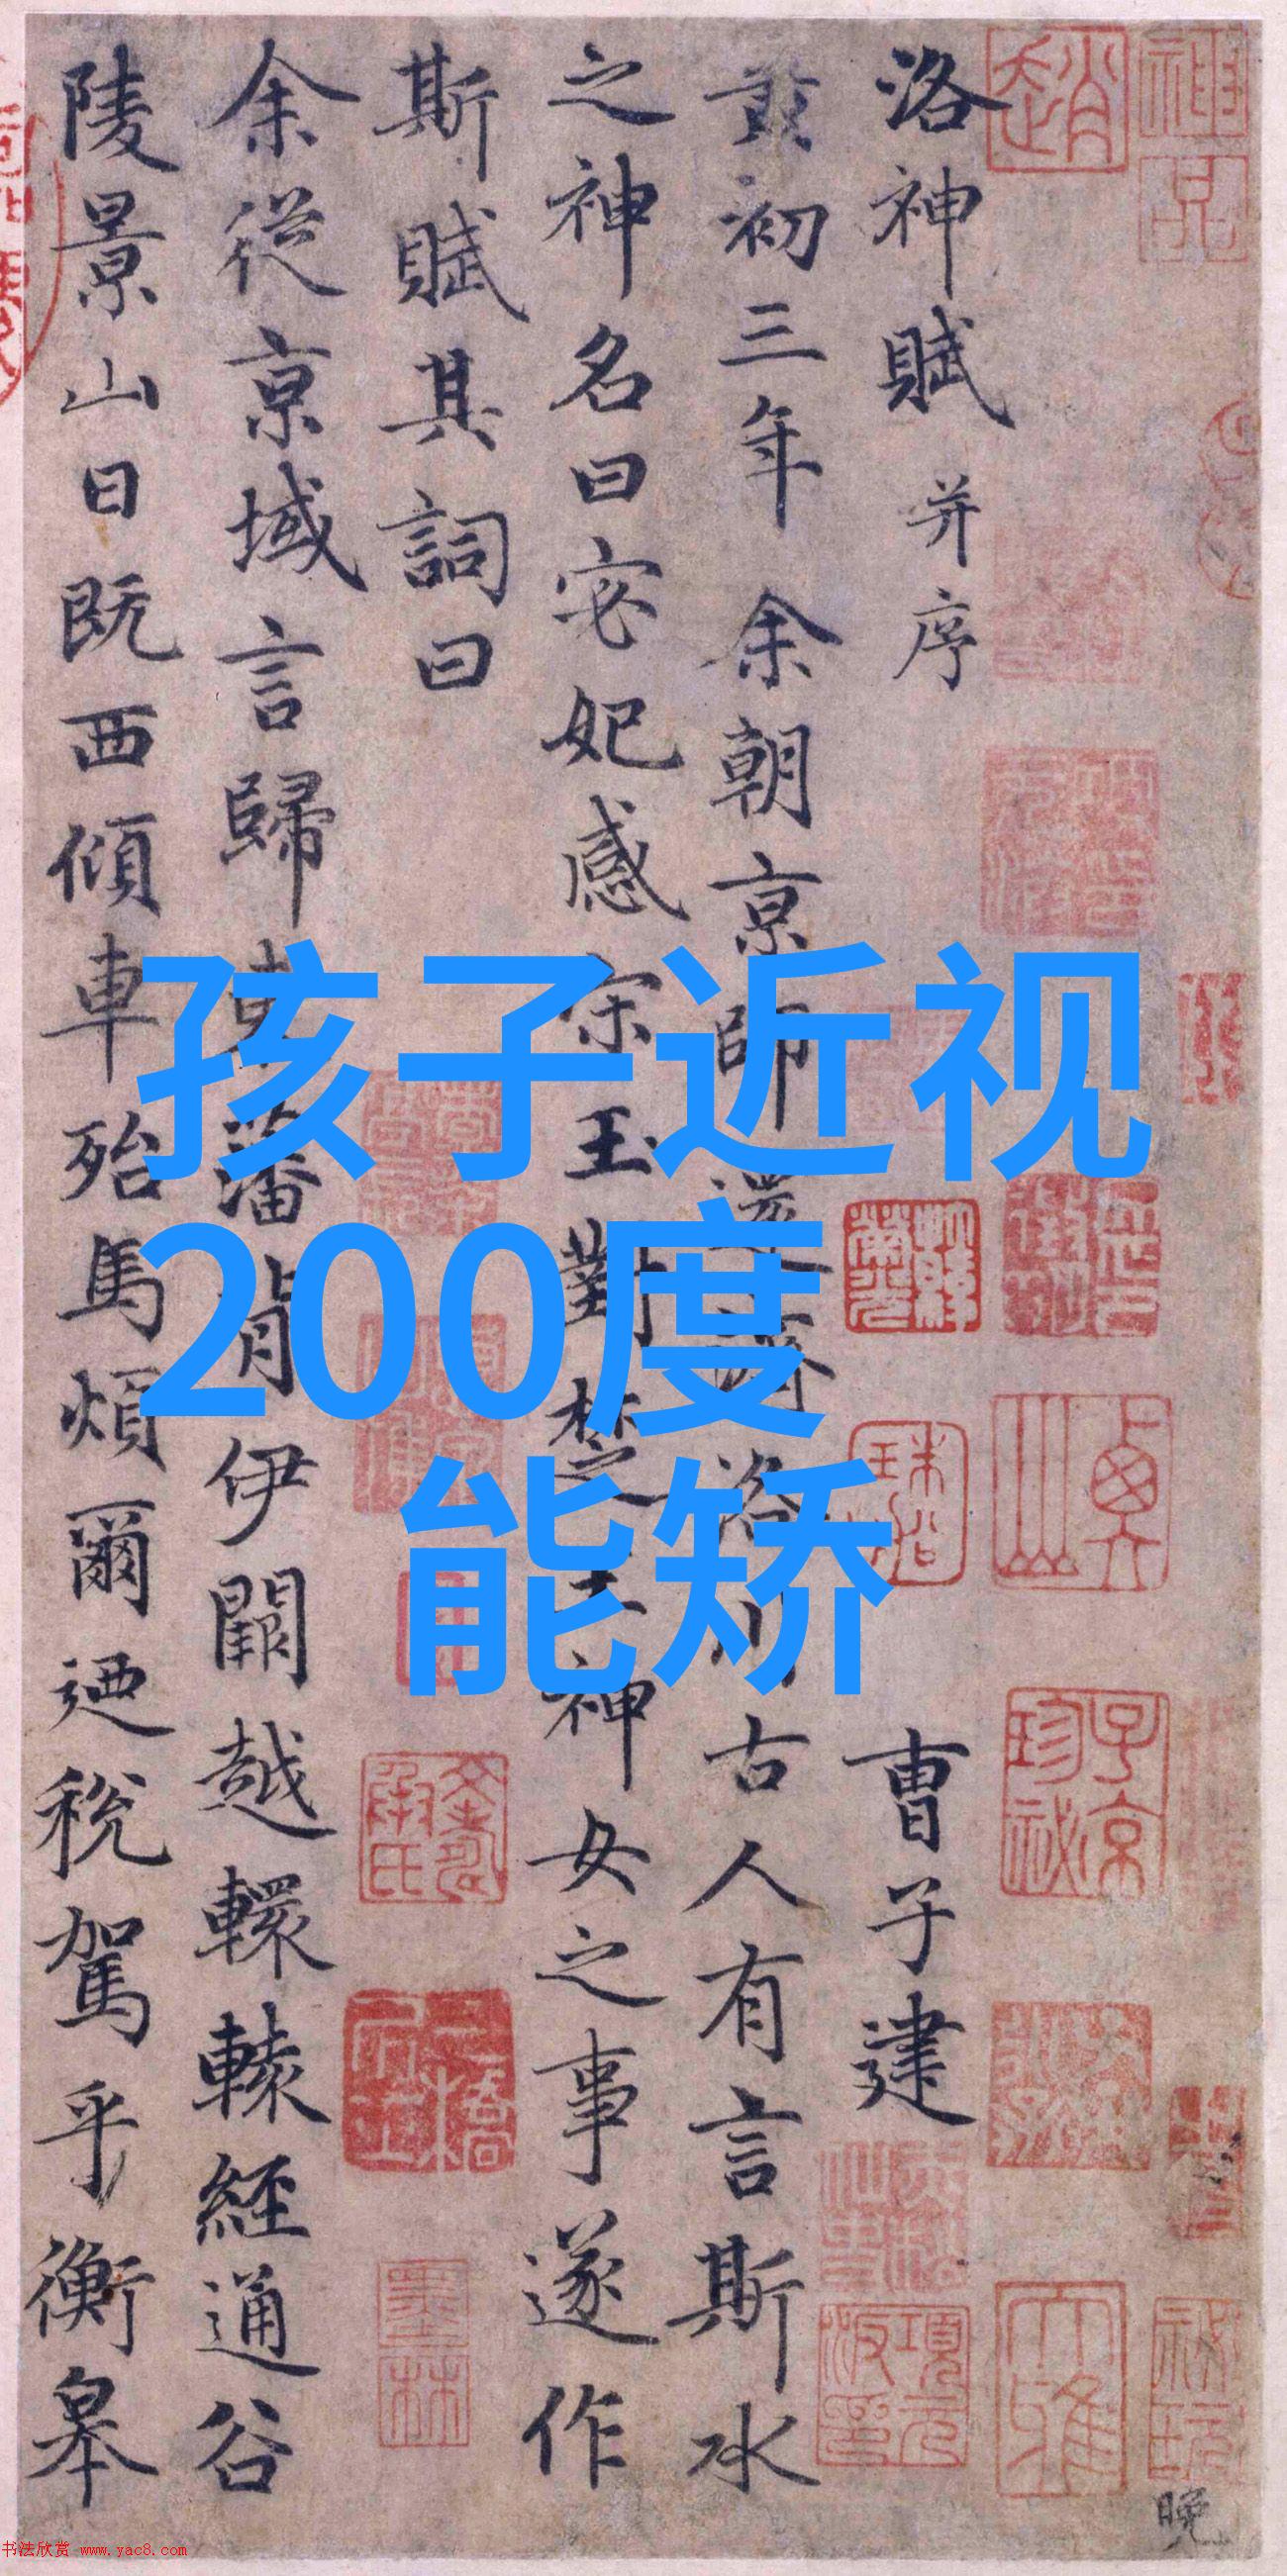 孩子近视
200度
能矫
洛神賦 并序 曹子建
黃初三年余朝京師還濟洛川古人有言斯水
之神名曰宓妃感宋玉對楚王神女之事遂作
斯賦其詞曰
余從京域言歸東藩背伊闕越轘轅經通谷
陵景山日既西傾車殆馬煩爾迺稅駕乎衡皋
趙
神品
子京珍祕
墨林
晚
书法欣赏 www.yac8.com